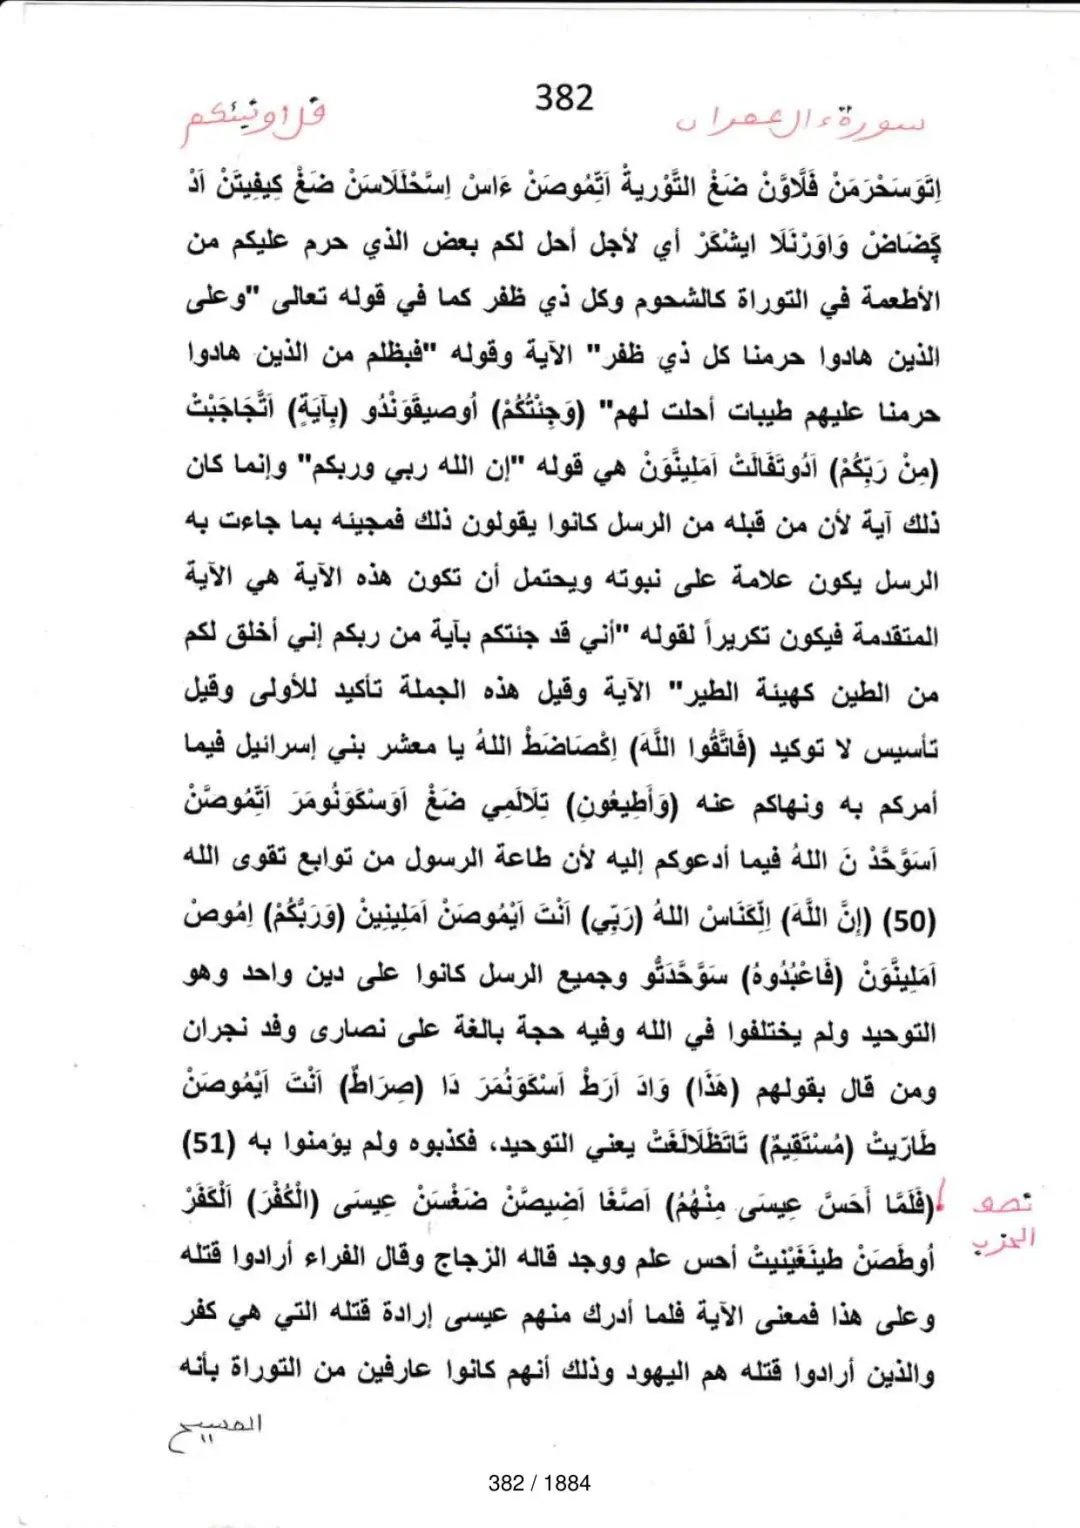 382
سورة ءال عمران
قل اونبئكم
اِتَوَسَحْرَمَنْ فَلَاوَّنْ ضَغْ التَّوْرِيةْ اَتِّمُوصَنْ ءَاسْ اِسَّحْلَلَاسَنْ ضَغْ كِيفِيتَنْ اَدْ
كَِضَاضْ وَاوَرْنَلَا ايشْكَرْ أي لأجل أحل لكم بعض الذي حرم عليكم من
الأطعمة في التوراة كالشحوم وكل ذي ظفر كما في قوله تعالى "وعلى
الذين هادوا حرمنا كل ذي ظفر" الآية وقوله "فبظلم من الذين هادوا
حرمنا عليهم طيبات أحلت لهم" (وَجِئْتُكُمْ) أُوصِيقَوَنْدُو (بِآيَةٍ) اَتَّجَاجَبْتْ
(مِنْ رَبِّكُمْ) اَدُوتَفَالَتْ اَمَلِينَّوَنْ هي قوله "إن الله ربي وربكم" وإنما كان
ذلك آية لأن من قبله من الرسل كانوا يقولون ذلك فمجيئه بما جاءت به
الرسل يكون علامة على نبوته ويحتمل أن تكون هذه الآية هي الآية
المتقدمة فيكون تكريراً لقوله "أني قد جئتكم بآية من ربكم إني أخلق لكم
من الطين كهيئة الطير" الآية وقيل هذه الجملة تأكيد للأولى وقيل
تأسيس لا توكيد (فَاتَّقُوا اللَّهَ) اِكْصَاضَطْ اللهُ يا معشر بني إسرائيل فيما
أمركم به ونهاكم عنه (وَأَطِيعُونِ) تِلَالَمِي ضَغْ اَوَسْكَوَنُومَرَ اَتِّمُوصَّنْ
اَسَوَّحَّدْ نَ اللهُ فيما أدعوكم إليه لأن طاعة الرسول من توابع تقوى الله
(50) (إِنَّ اللَّهَ) اِلِّكَنَاسْ اللهُ (رَبِّي) اَنْتَ اَيْمُوصَنْ اَمَلِينِينْ (وَرَبُّكُمْ) اِمُوصنْ
اَمَلِينَّوَنْ (فَاعْبُدُوهُ) سَوَّحَّدَتُّو وجميع الرسل كانوا على دين واحد وهو
التوحيد ولم يختلفوا في الله وفيه حجة بالغة على نصارى وفد نجران
ومن قال بقولهم (هَذَا) وَادَ اَرَطْ اَسْكَوَنُمَرَ دَا (صِرَاطٌ) اَنْتَ اَيْمُوصَنْ
طَارَيتْ (مُسْتَقِيمٌ) تَاتَظَلَالَغَتْ يعني التوحيد، فكذبوه ولم يؤمنوا به (51)
(فَلَمَّا أَحَسَّ عِيسَى مِنْهُمُ) اَصَّغَا اَضِيصَّنْ ضَغْسَنْ عِيسَى (الْكُفْرَ) اَلْكَفَرْ
نصف
الحزب
أُوطَصَنْ طينَغَيْنِيتْ أحس علم ووجد قاله الزجاج وقال الفراء أرادوا قتله
وعلى هذا فمعنى الآية فلما أدرك منهم عيسى إرادة قتله التي هي كفر
والذين أرادوا قتله هم اليهود وذلك أنهم كانوا عارفين من التوراة بأنه
المسيح
382 / 1884